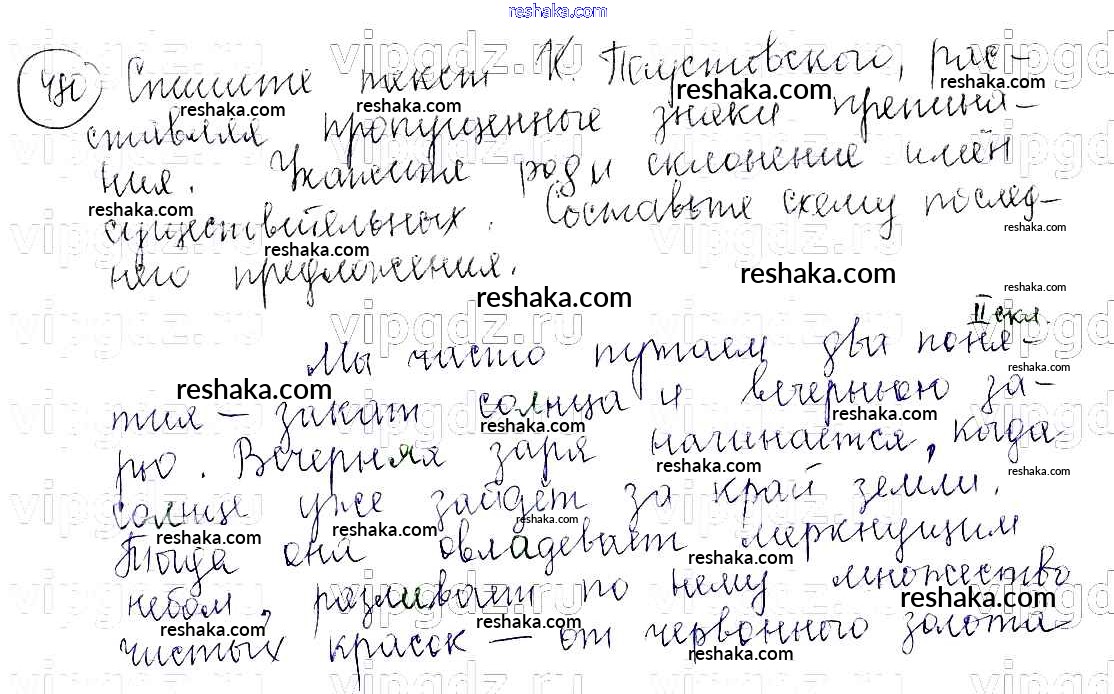 reshaka.com
480 Спишите текст К. Паустовского, рас-
ставляя пропущенные знаки препина-
ния. Укажите род и склонение имён
существительных. Составьте схему послед-
него предложения.
II скл.
Мы часто путаем два поня-
тия – закат солнца и вечернюю за-
рю. Вечерняя заря начинается, когда
солнце уже зайдёт за край земли.
Тогда она овладевает меркнущим
небом, разливает по нему множество
чистых красок – от червонного золота-